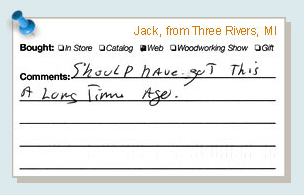 Jack, from Three Rivers, MI
Bought: ☐In Store ☐Catalog ☑Web ☐Woodworking Show ☐Gift
Comments: Should have got This
A Long Time Ago.